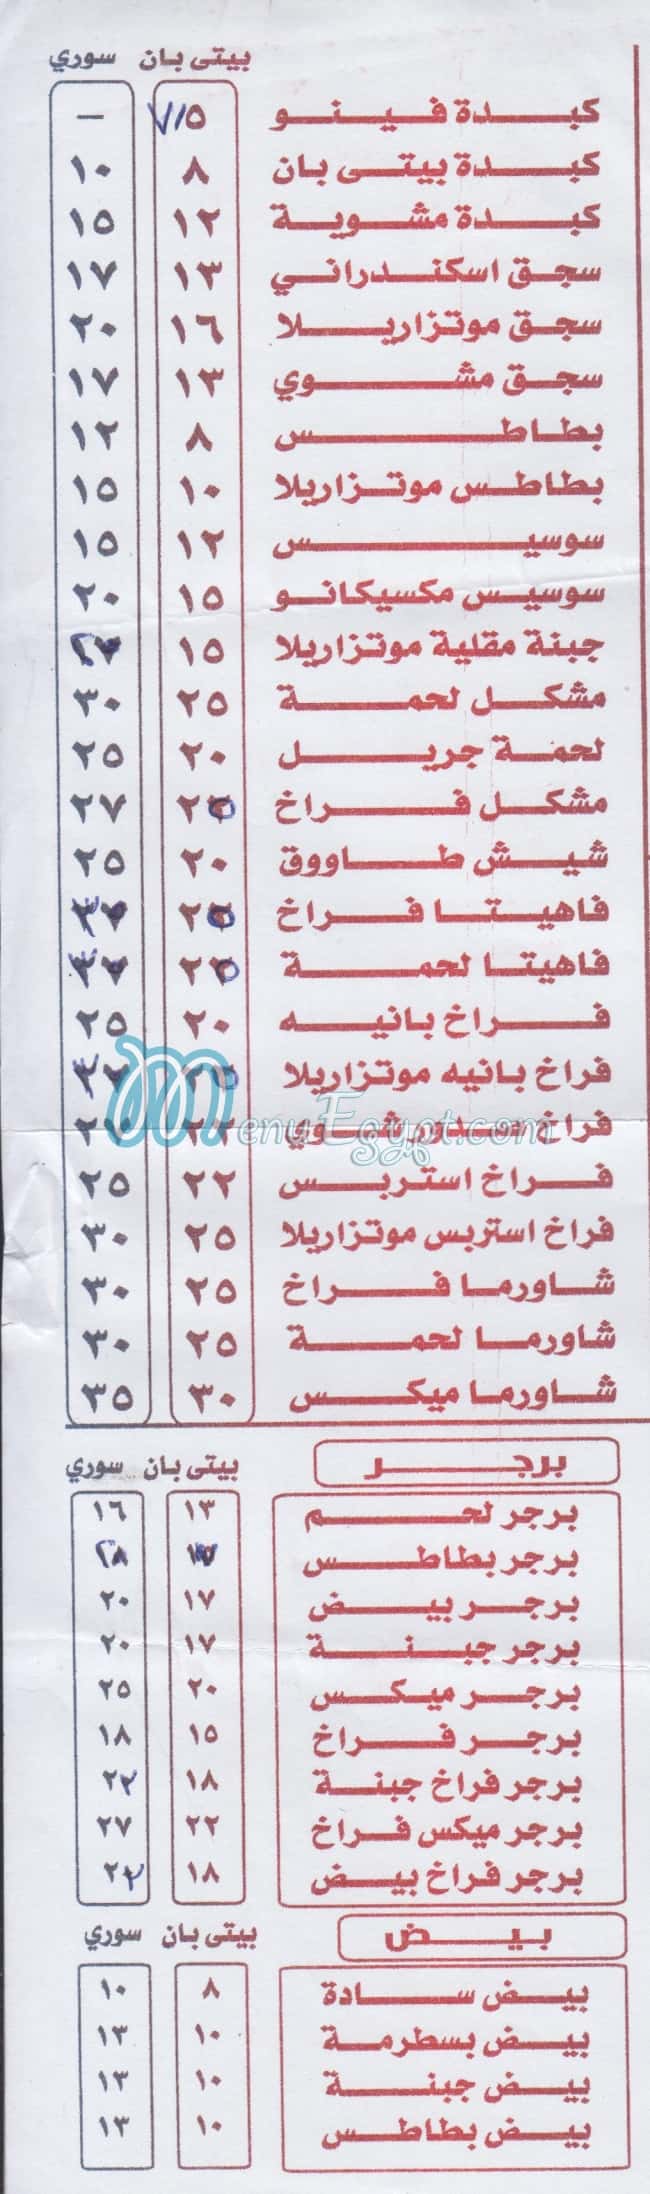 بيتى بان سوري
كبدة فينو ٧/٥ –
كبدة بيتى بان ٨ ١٠
كبدة مشوية ١٢ ١٥
سجق اسكندراني ١٣ ١٧
سجق موتزاريلا ١٦ ٢٠
سجق مشوي ١٣ ١٧
بطاطس ٨ ١٢
بطاطس موتزاريلا ١٠ ١٥
سوسيس ١٢ ١٥
سوسيس مكسيكانو ١٥ ٢٠
جبنة مقلية موتزاريلا ١٥
مشكل لحمة ٢٥ ٣٠
لحمة جريل ٢٠ ٢٥
مشكل فراخ ٢٥ ٢٧
شيش طاووق ٢٠ ٢٥
فاهيتا فراخ ٢٥ ٣٠
فاهيتا لحمة ٢٥ ٣٠
فراخ بانيه ٢٠ ٢٥
فراخ بانيه موتزاريلا ٢٥
MenuEgypt.com
فراخ صدور مشوي ٢٢ ٢٧
فراخ استربس ٢٢ ٢٥
فراخ استربس موتزاريلا ٢٥ ٣٠
شاورما فراخ ٢٥ ٣٠
شاورما لحمة ٢٥ ٣٠
شاورما ميكس ٣٠ ٣٥
برجر بيتى بان سوري
برجر لحم ١٣ ١٦
برجر بطاطس
برجر بيض ١٧ ٢٠
برجر جبنة ١٧ ٢٠
برجر ميكس ٢٠ ٢٥
برجر فراخ ١٥ ١٨
برجر فراخ جبنة ١٨ ٢٢
برجر ميكس فراخ ٢٢ ٢٧
برجر فراخ بيض ١٨ ٢٢
بيض بيتى بان سوري
بيض سادة ٨ ١٠
بيض بسطرمة ١٠ ١٣
بيض جبنة ١٠ ١٣
بيض بطاطس ١٠ ١٣